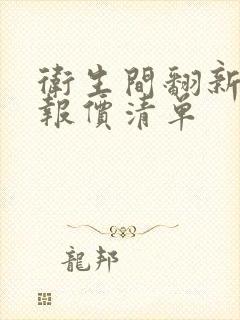 衛生間翻新
報價清单
龍邦